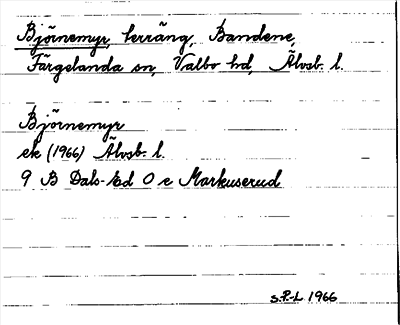 Björnemyr, terräng, Bandene,
Färgelanda sn, Valbo hd, Älvsb. l.
Björnemyr
ek (1966) Älvsb. l.
9 B Dals-Ed O e Markuserud
S.P-L 1966